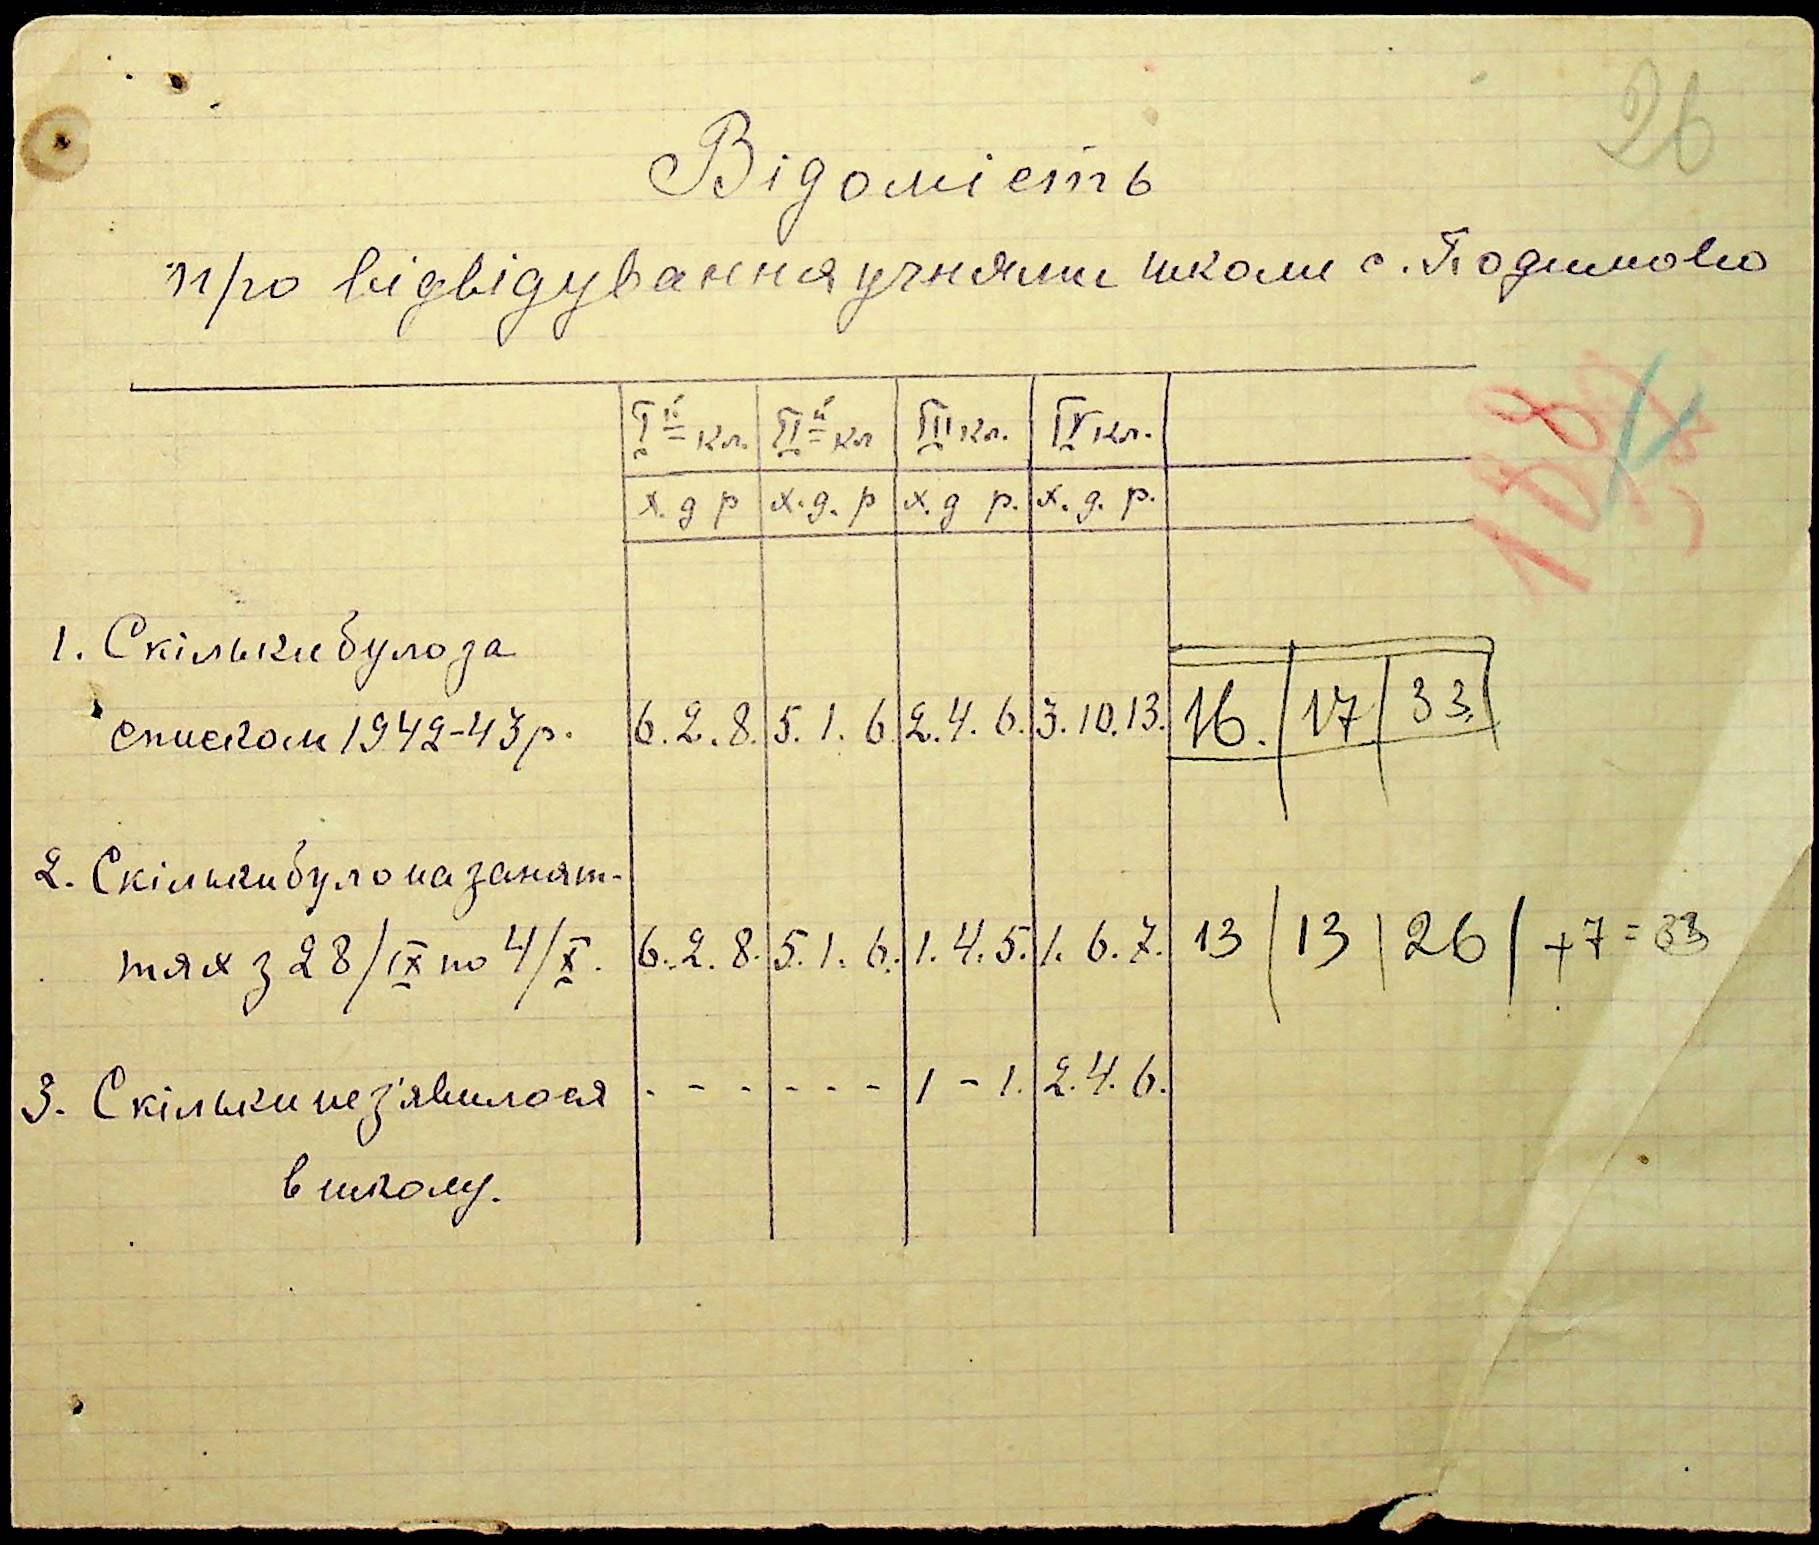 26
Відомість
про відвідування учнями школи с. Подимово
188
Iй кл. IIй кл III кл. IV кл.
х. д р х. д. р х. д р. х. д. р.
1. Скільки було за
списком 1942-43 р. 6. 2. 8. 5. 1. 6 2. 4. 6. 3. 10. 13. 16. 17 33.
2. Скільки було на занят-
тях з 28/IX по 4/X. 6. 2. 8. 5. 1. 6. 1. 4. 5. 1. 6. 7. 13 13 26 +7 = 33
3. Скільки не з'явилося - - - - - - 1 - 1. 2. 4. 6.
в школу.